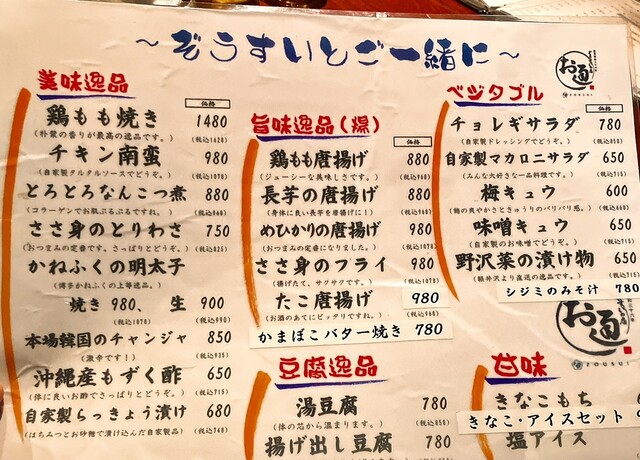 ～ぞうすいとご一緒に～
お通
ZOUSUI
美味逸品
価格
鶏もも焼き 1480
(朴葉の香りが最高の逸品です。) (税込1628)
チキン南蛮 980
(自家製タルタルソースでどうぞ。) (税込1078)
とろとろなんこつ煮 880
(コラーゲンでお肌ぷるぷるですね。) (税込968)
ささ身のとりわさ 750
(おつまみの定番です。さっぱりとどうぞ。) (税込825)
かねふくの明太子
(博多かねふくの上等逸品。)
焼き 980、 生 900
(税込1078) (税込990)
本場韓国のチャンジャ 850
(激辛です!) (税込935)
沖縄産もずく酢 650
(体に良いお酢でさっぱりとどうぞ。) (税込715)
自家製らっきょう漬け 680
(はちみつとお砂糖で漬け込んだ自家製品) (税込748)
旨味逸品(揚)
価格
鶏もも唐揚げ 880
(ジューシーな美味しさです。) (税込968)
長芋の唐揚げ 880
(身体に良い長芋を唐揚げに!) (税込968)
めひかりの唐揚げ 980
(おつまみの定番になりました。) (税込1078)
ささ身のフライ 980
(揚げたて、サクサクです。) (税込1078)
たこ唐揚げ 980
(お酒のあてにピッタリですね。)
かまぼこバター焼き 780
豆腐逸品
湯豆腐 780
(体の芯から温まります。) (税込858)
揚げ出し豆腐 780
ベジタブル
価格
チョレギサラダ 780
(自家製ドレッシングでどうぞ。) (税込858)
自家製マカロニサラダ 650
(みんな大好きな一品料理です。) (税込715)
梅キュウ 600
(梅の爽やかさときゅうりのパリパリ感。) (税込660)
味噌キュウ 650
(自家製のお味噌でどうぞ。) (税込715)
野沢菜の漬け物 650
(軽井沢より直送の逸品です。) (税込715)
シジミのみそ汁 780
お通
ZOUSUI
甘味
きなこもち
きなこ・アイスセット
塩アイス